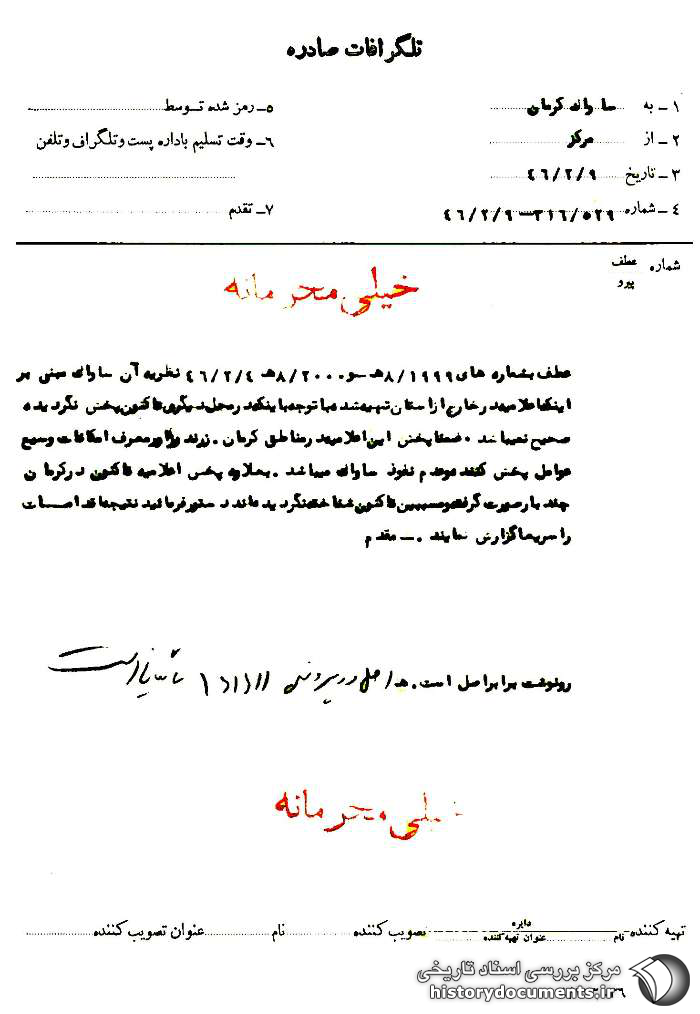 تلگرافات صادره
۱ـ به ساواک کرمان
۲ـ از مرکز
۳ـ تاریخ ۴۶/۲/۹
۴ـ شماره ۳۱۶/۵۲۹ــ۴۶/۲/۹
۵ـ رمز شده توسط
۶ـ وقت تسلیم باداره پست وتلگراف وتلفن
۷ـ تقدم
شماره عطف
پیرو
خیلی محرمانه
عطف بشماره های ۸/۱۹۹۹هـ و ۸/۲۰۰۰هـ ۴۶/۲/۴ نظریه آن ساواک مبنی بر
اینکه اعلامیه در خارج از استان تهیه شده با توجه باینکه در محل دیگری تاکنون پخش نگردیده
صحیح نمیباشد . ضمنا پخش این اعلامیه در مناطق کرمان . زرند و راور معرف امکانات وسیع
عوامل پخش کننده و عدم نفوذ ساواک میباشد . بعلاوه پخش اعلامیه تاکنون در کرمان
چند بار صورت گرفته و مسببین تاکنون شناخته نگردیده اند دستور فرمائید نتیجه اقدامات
را سریعا گزارش نمایند . ــ مقدم
رونوشت برابر اصل است . هـ اصل در پرونده
خیلی محرمانه
تهیه کننده نام دایره
عنوان تهیه کننده تصویب کننده نام عنوان تصویب کننده
مرکز بررسی اسناد تاریخی
historydocuments.ir